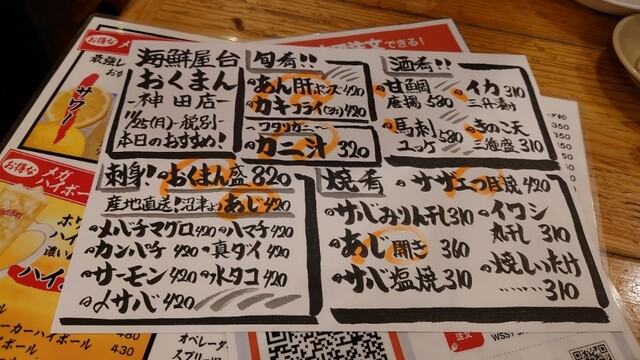 海鮮屋台
おくまん
-神田店-
11/25(月)-税別-
本日のおすすめ!
旬肴!!
あん肝ポン酢 420
カキフライ(3ケ) 420
ワタリガニ
カニ汁 320
酒肴!!
甘鯛
唐揚 580
イカ 310
三升漬け
馬刺
ユッケ 580
きのこ天
三種盛 310
刺身! おくまん盛 820
産地直送!沼津より あじ 420
メバチマグロ 420
ハマチ 420
カンパチ 420
真ダイ 420
サーモン 420
水タコ 420
〆サバ 420
焼肴
サザエつぼ焼 420
サバみりん干 310
イワシ
丸干し 310
あじ開き 360
サバ塩焼 310
焼しいたけ
……… 310
お得な メガ
最強レ
サワー
お得な メガ
メガ
ハイボー
ハイ
注文できる!
ーカーハイボール
480
430
350
350
注文